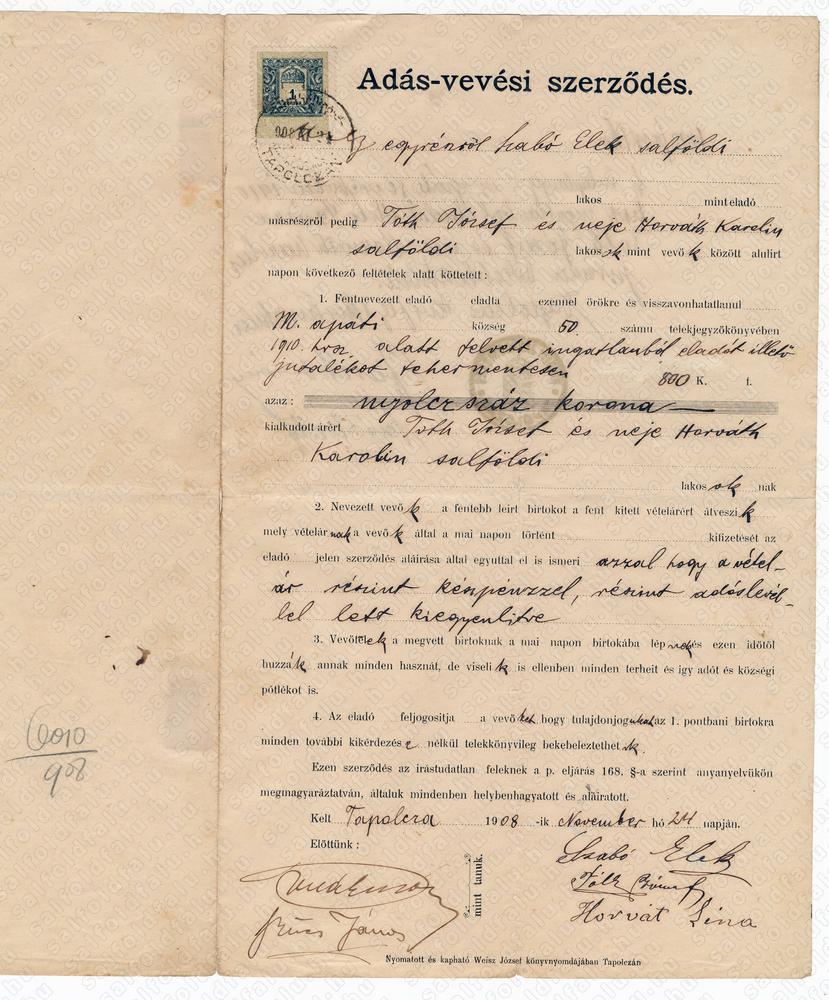 Adás-vevési szerződés.
1
908 XI 24
TAPOLCZAN
egyrészről Szabó Elek salföldi
lakos mint eladó
másrészről pedig Tóth József és neje Horváth Karolin
salföldi lakos ok mint vevő k között alulirt
napon következő feltételek alatt köttetett:
1. Fentnevezett eladó eladta ezennel örökre és visszavonhatatlanul
M. apáti község 50 számu telekjegyzőkönyvében
1910. hrsz. alatt felvett ingatlanból eladót illető
jutalékot tehermentesen 800 K. f.
azaz: nyolcz száz korona
kialkudott árért Tóth József és neje Horváth
Karolin salföldi
lakos ok nak
2. Nevezett vevő k a fentebb leirt birtokot a fent kitett vételárért átveszi k
mely vételár nak a vevő k által a mai napon történt kifizetését az
eladó jelen szerződés aláirása által egyuttal el is ismeri azzal hogy a vétel-
ár részint készpénzzel, részint adóslevél-
lel lett kiegyenlitve
3. Vevő ek a megvett birtoknak a mai napon birtokába lép nek és ezen időtől
huzzá k annak minden hasznát, de viseli k is ellenben minden terheit és igy adót és községi
pótlékot is.
4. Az eladó feljogositja a vevő ket hogy tulajdonjog ukat az 1. pontbani birtokra
minden további kikérdezés e nélkül telekkönyvileg bekebeleztethet ik.
Ezen szerződés az irástudatlan feleknek a p. eljárás 168. §-a szerint anyanyelvükön
megmagyaráztatván, általuk mindenben helybenhagyatott és aláiratott.
Kelt Tapolcza 1908 -ik November hó 24 napján.
Előttünk:
Szabó Elek
Tóth József
Horvát Lina
mint tanuk.
János
Nyomatott és kapható Weisz József könyvnyomdájában Tapolczán
6010
908